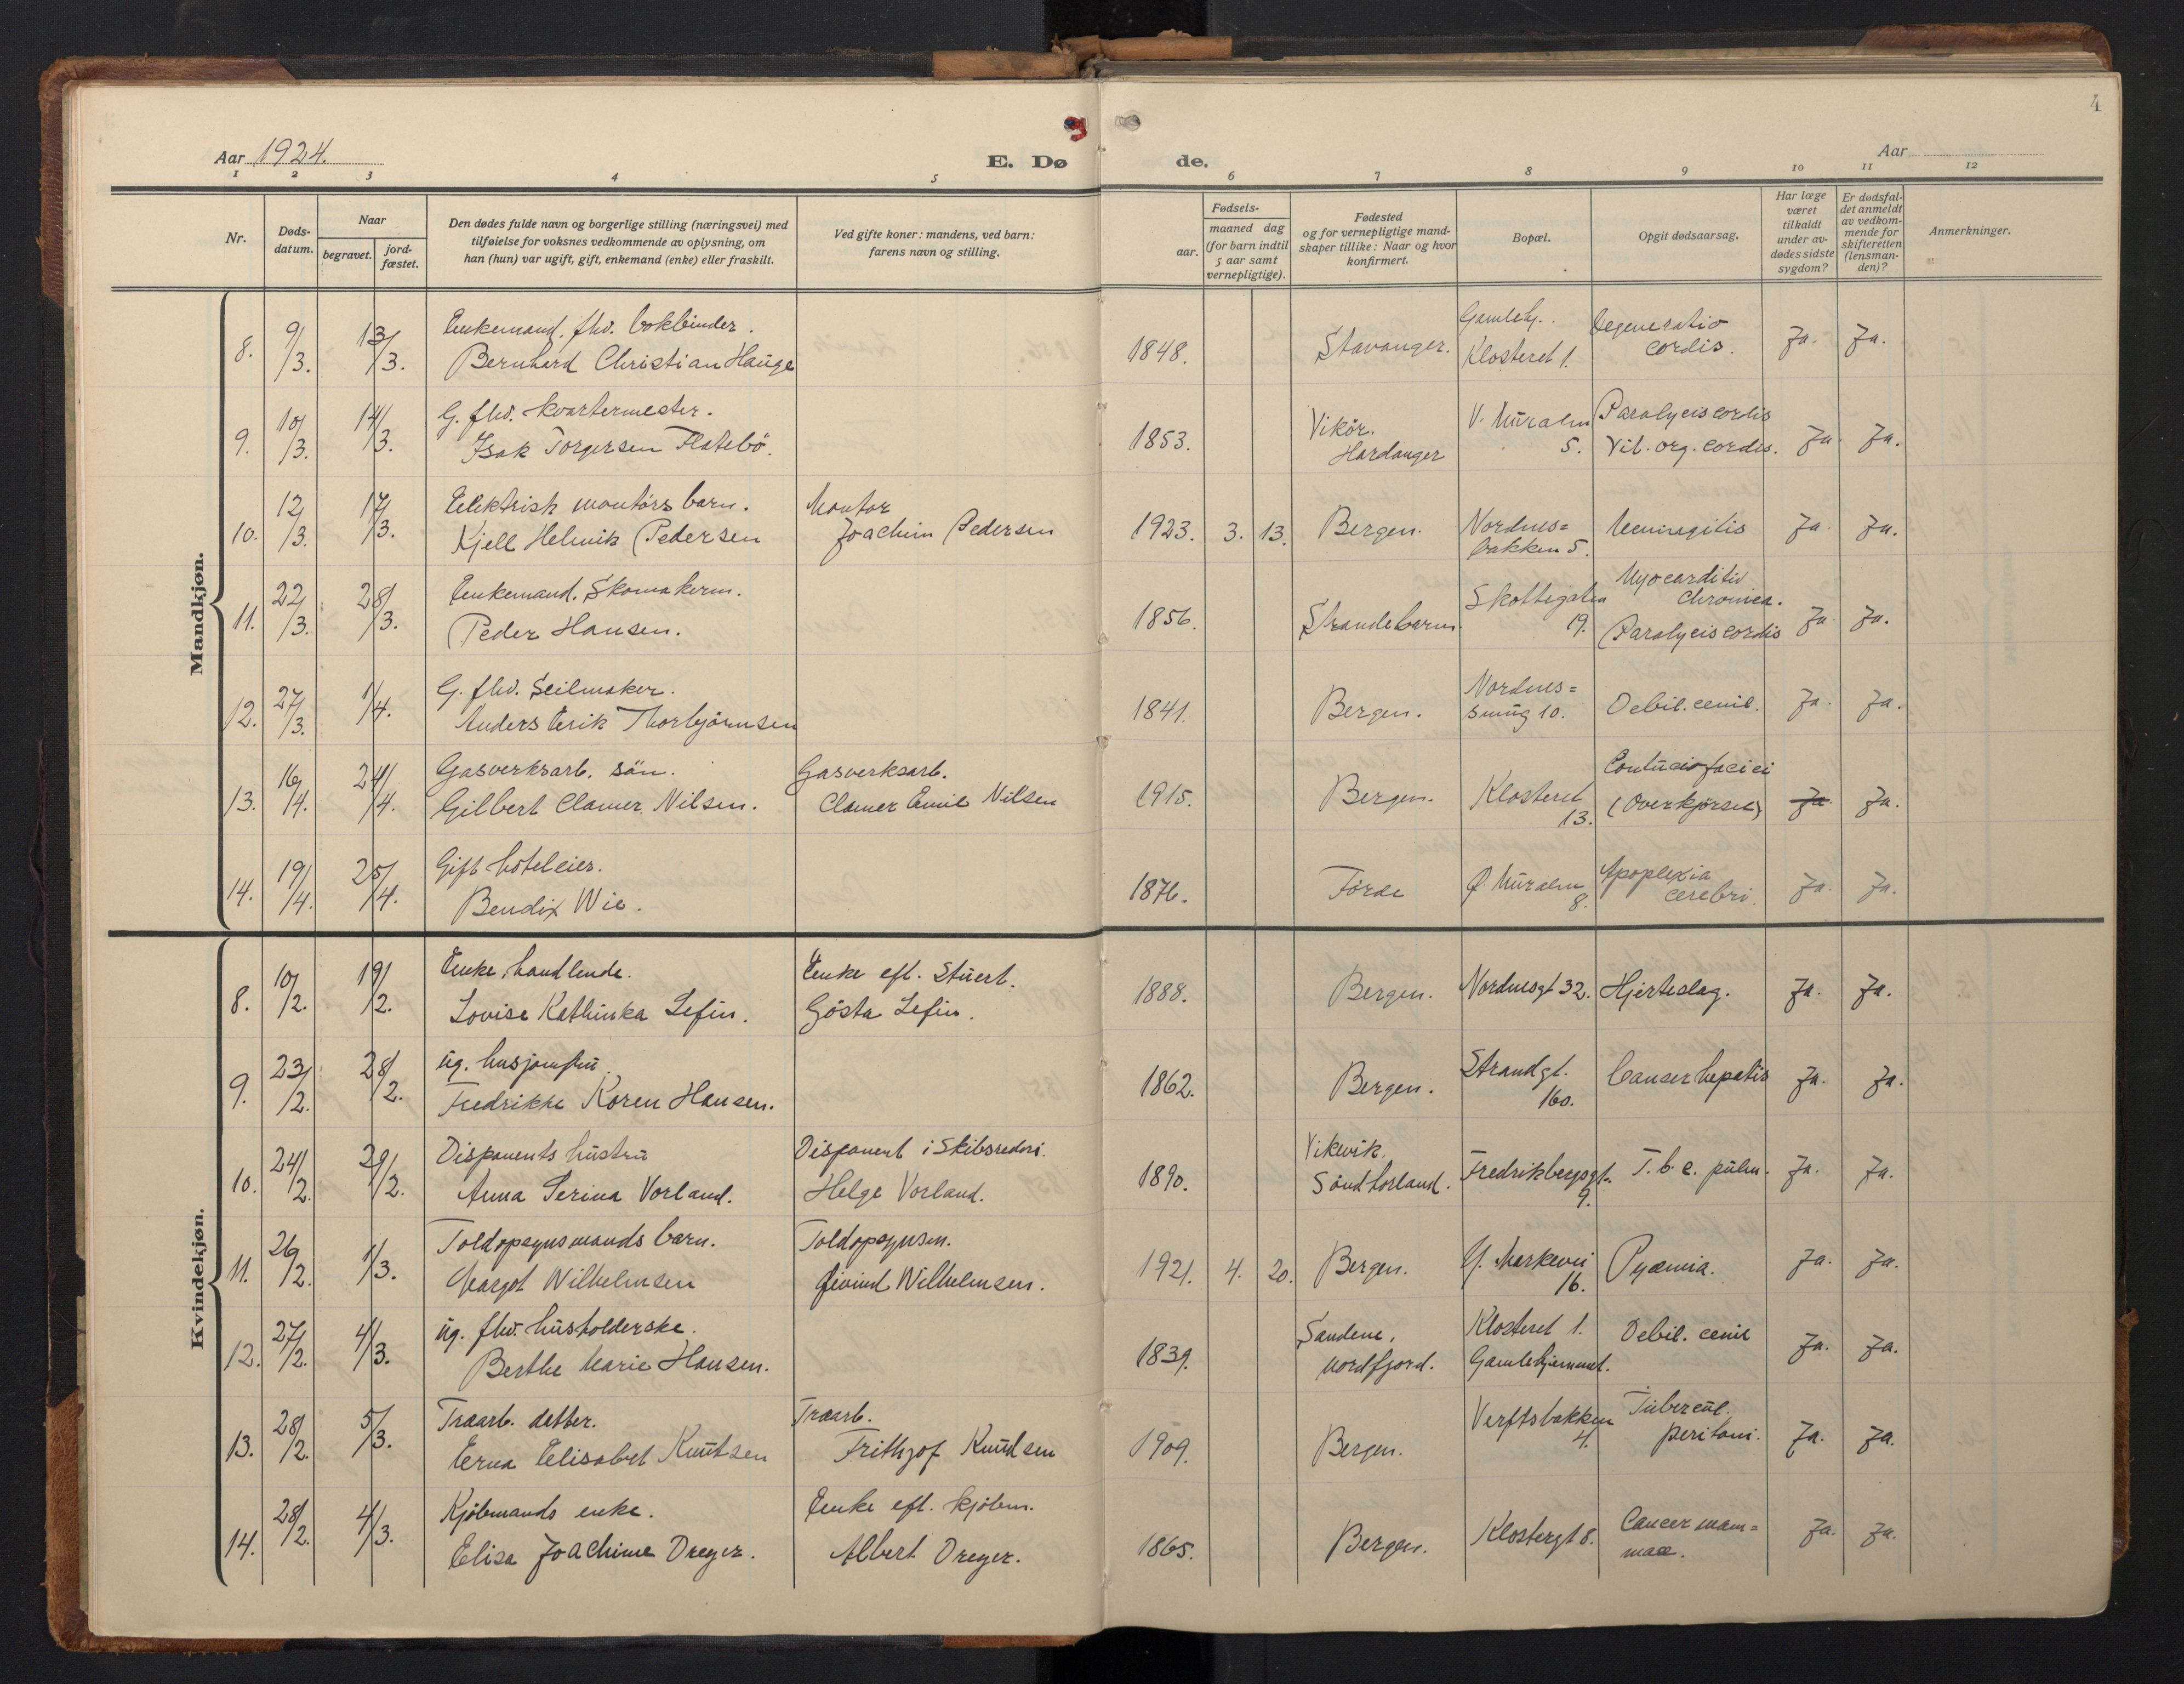 4
Aar 1924.
E. Dø
de.
Aar
1 2 3 4 5 6 7 8 9 10 11 12
Nr.
Døds-
datum.
Naar
begravet.
jord-
fæstet.
Den dødes fulde navn og borgerlige stilling (næringsvei) med
tilføielse for voksnes vedkommende av oplysning, om
han (hun) var ugift, gift, enkemand (enke) eller fraskilt.
Ved gifte koner: mandens, ved barn:
farens navn og stilling.
Fødsels-
aar.
maaned dag
(for barn indtil
5 aar samt
vernepligtige).
Fødested
og for vernepligtige mand-
skaper tillike: Naar og hvor
konfirmert.
Bopæl.
Opgit dødsaarsag.
Har læge
været
tilkaldt
under av-
dødes sidste
sygdom?
Er dødsfal-
det anmeldt
av vedkom-
mende for
skifteretten
(lensman-
den)?
Anmerkninger.
Mandkjøn.
8. 9/3. 13/3. Enkemand. fhv. bokbinder.
Bernhard Christian Hauge
1848. Stavanger. Gamlehj. Klosteret 1. Degeneratio cordis. Ja. Ja.
9. 10/3. 14/3. G. fhv. kvartermester.
Isak Torgersen Flatebö.
1853. Vikör. Hardanger V. Muralm 5. Paralycis cordis Vit. org. cordis. Ja Ja.
10. 12/3. 17/3. Elektrisk montörs barn.
Kjell Helmik Pedersen
Montør
Joachim Pedersen
1923. 3. 13. Bergen. Nordnes= bakken 5. Meningitis Ja. Ja.
11. 22/3. 28/3. Enkemand. Skomakerm.
Peder Hansen.
1856. Strandebarm. Skottegaten 19. Myocarditis Chronica. Paralycis cordis Ja. Ja.
12. 27/3. 1/4. G. fhv. Seilmaker.
Anders Eerik Thorbjörnsen
1841. Bergen. Nordnes= smug 10. Debil. cenil. Ja. Ja.
13. 16/4. 24/4. Gasverksarb. sön.
Gilbert Clamer Nilsen.
Gasverksarb.
Clamer Emil Nilsen
1915. Bergen. Klosteret 13. Contucio faciei (Overkjørsel) Ja. Ja.
14. 19/4. 25/4. Gift hoteleier.
Bendix Wie.
1876. Förde Ø. Muralm 8. Apoplexia cerebri. Ja. Ja.
Kvindekjøn.
8. 10/2. 19/2. Enke, handlende.
Lovise Kathinka Lefin.
Enke eft. Stuert.
Gösta Lefin.
1888. Bergen. Nordnesgt 32. Hjerteslag. Ja. Ja.
9. 23/2. 28/2. ug. husjomfru
Fredrikke Koren Hansen.
1862. Bergen. Strandgt. 160. Canser hepatis Ja. Ja.
10. 24/2. 29/2. Disponents hustru
Anna Serina Vorland.
Disponent i Skibsrederi.
Helge Vorland.
1890. Vikevik. Söndhorland. Fredrikbergsgt. 9. T.b.c. pulm. Ja. Ja.
11. 26/2. 1/3. Toldopsynsmands barn.
Margot Wilhelmsen
Toldopsynsm.
Øivind Wilhelmsen.
1921. 4. 20. Bergen. Y. Markevei 16. Pyæmia. Ja. Ja.
12. 27/2. 4/3. ug. fhv. husholderske.
Berthe Marie Hansen.
1839. Sandene, Nordfjord. Klosteret 1. Gamlehjemmet. Debil. cenil Ja. Ja.
13. 28/2. 5/3. Træarb. datter.
Erna Elisabet Knutsen
Træarb.
Frithjof Knudsen
1909. Bergen. Verftsbakken 4. Tubercul. peritoni. Ja. Ja.
14. 28/2. 4/3. Kjöbmands enke.
Elisa Joachime Dreyer.
Enke eft. kjöbm.
Albert Dreyer.
1865. Bergen. Klostergt 8. Cancer mam= mae. Ja. Ja.